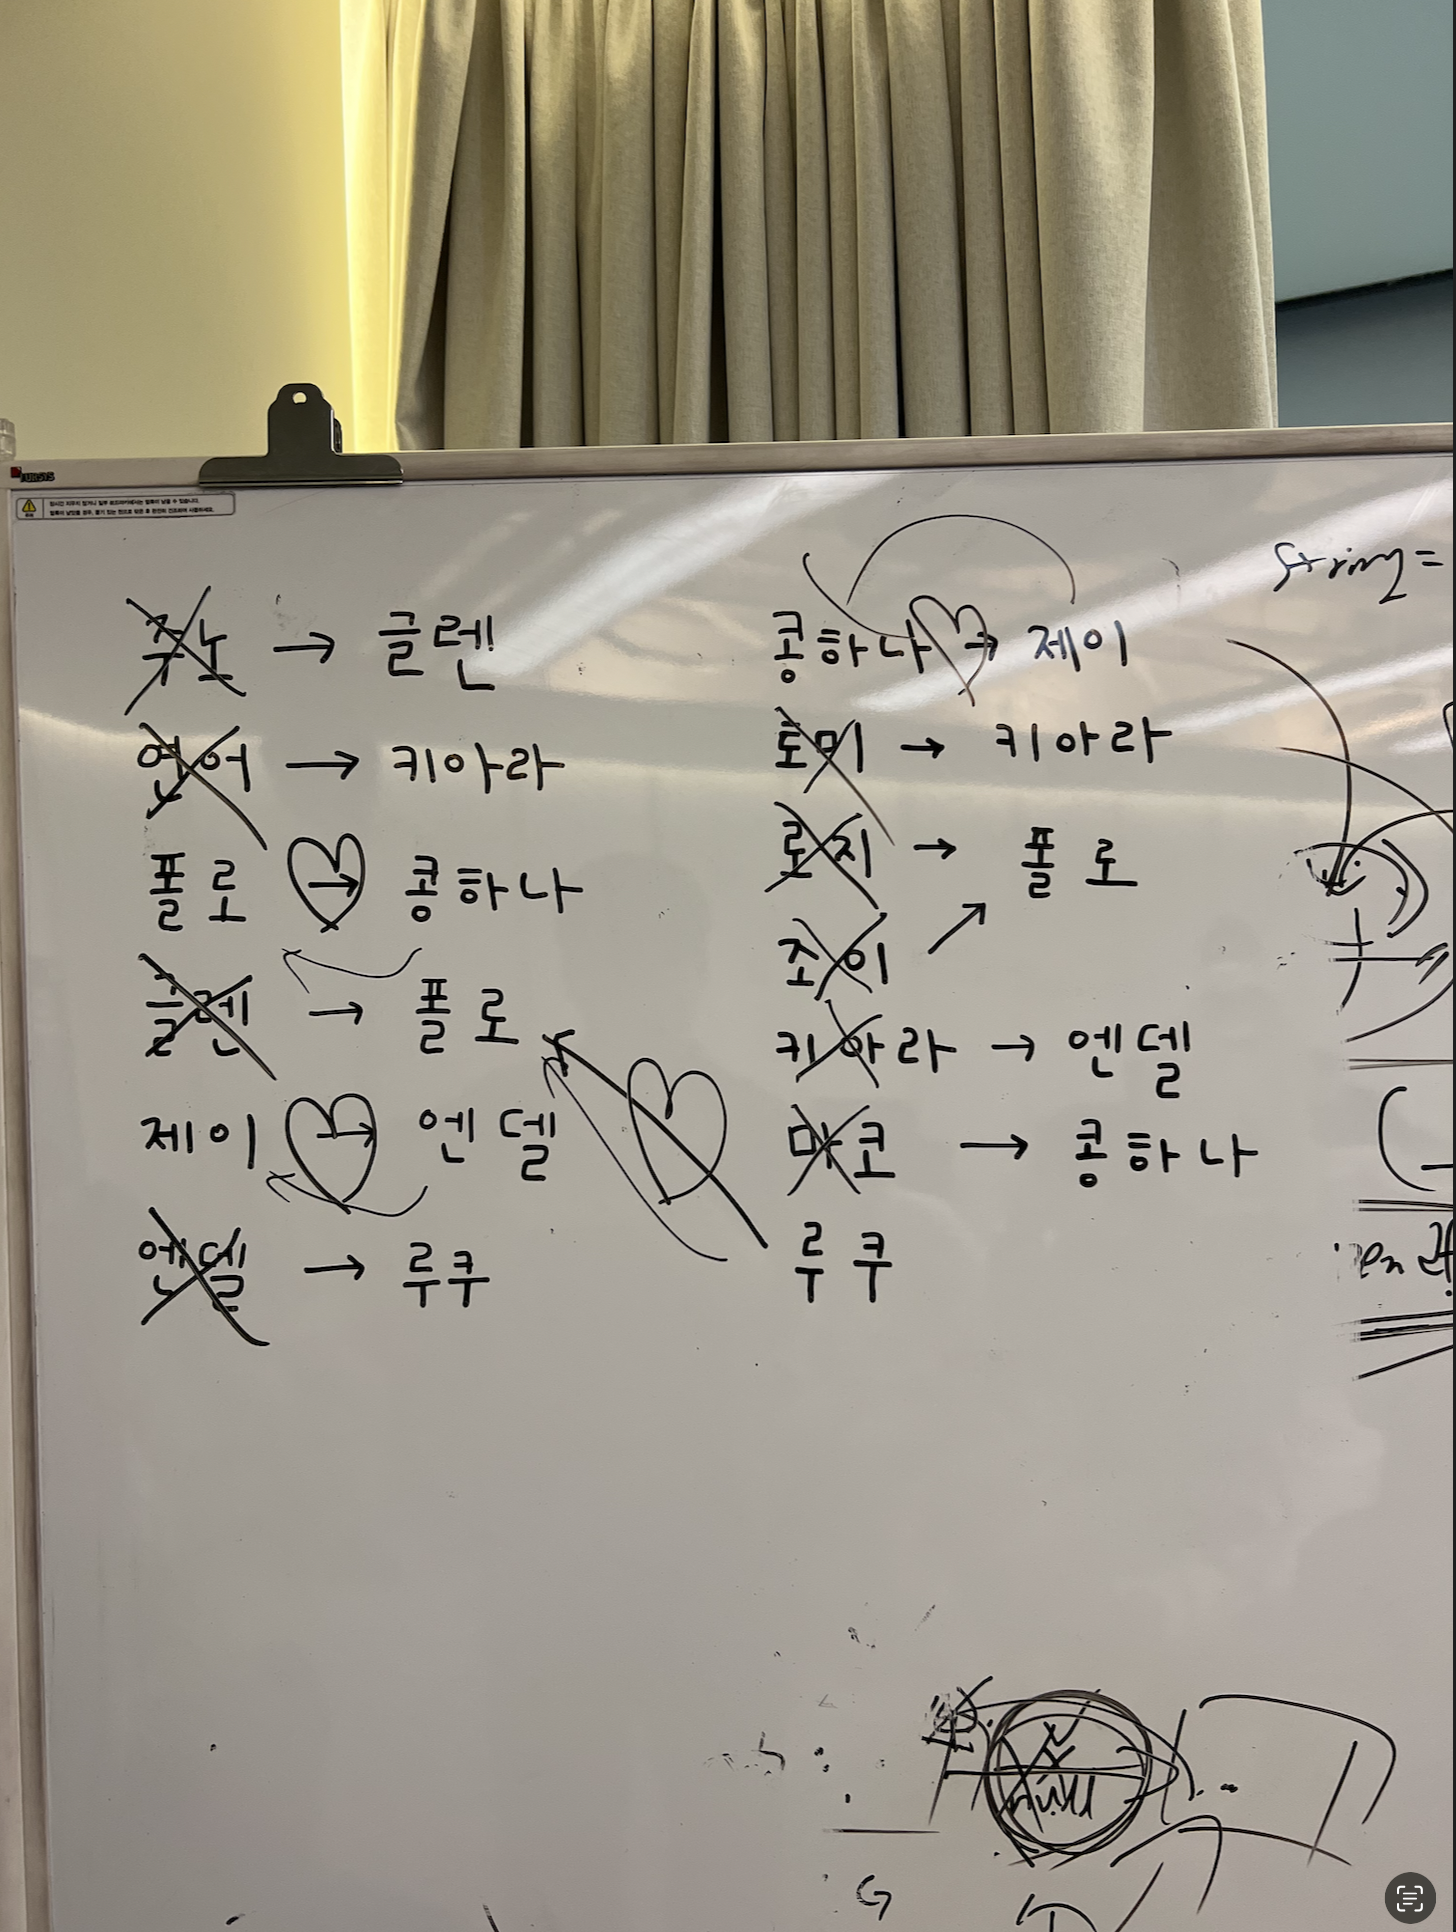 FURSYS
주노 → 글렌
연어 → 키아라
폴로 → 콩하나
글렌 → 폴로
제이 → 엔델
엔델 → 루쿠
콩하나 → 제이
토미 → 키아라
로지 → 폴로
조이
키아라 → 엔델
마코 → 콩하나
루쿠
String =
null
G